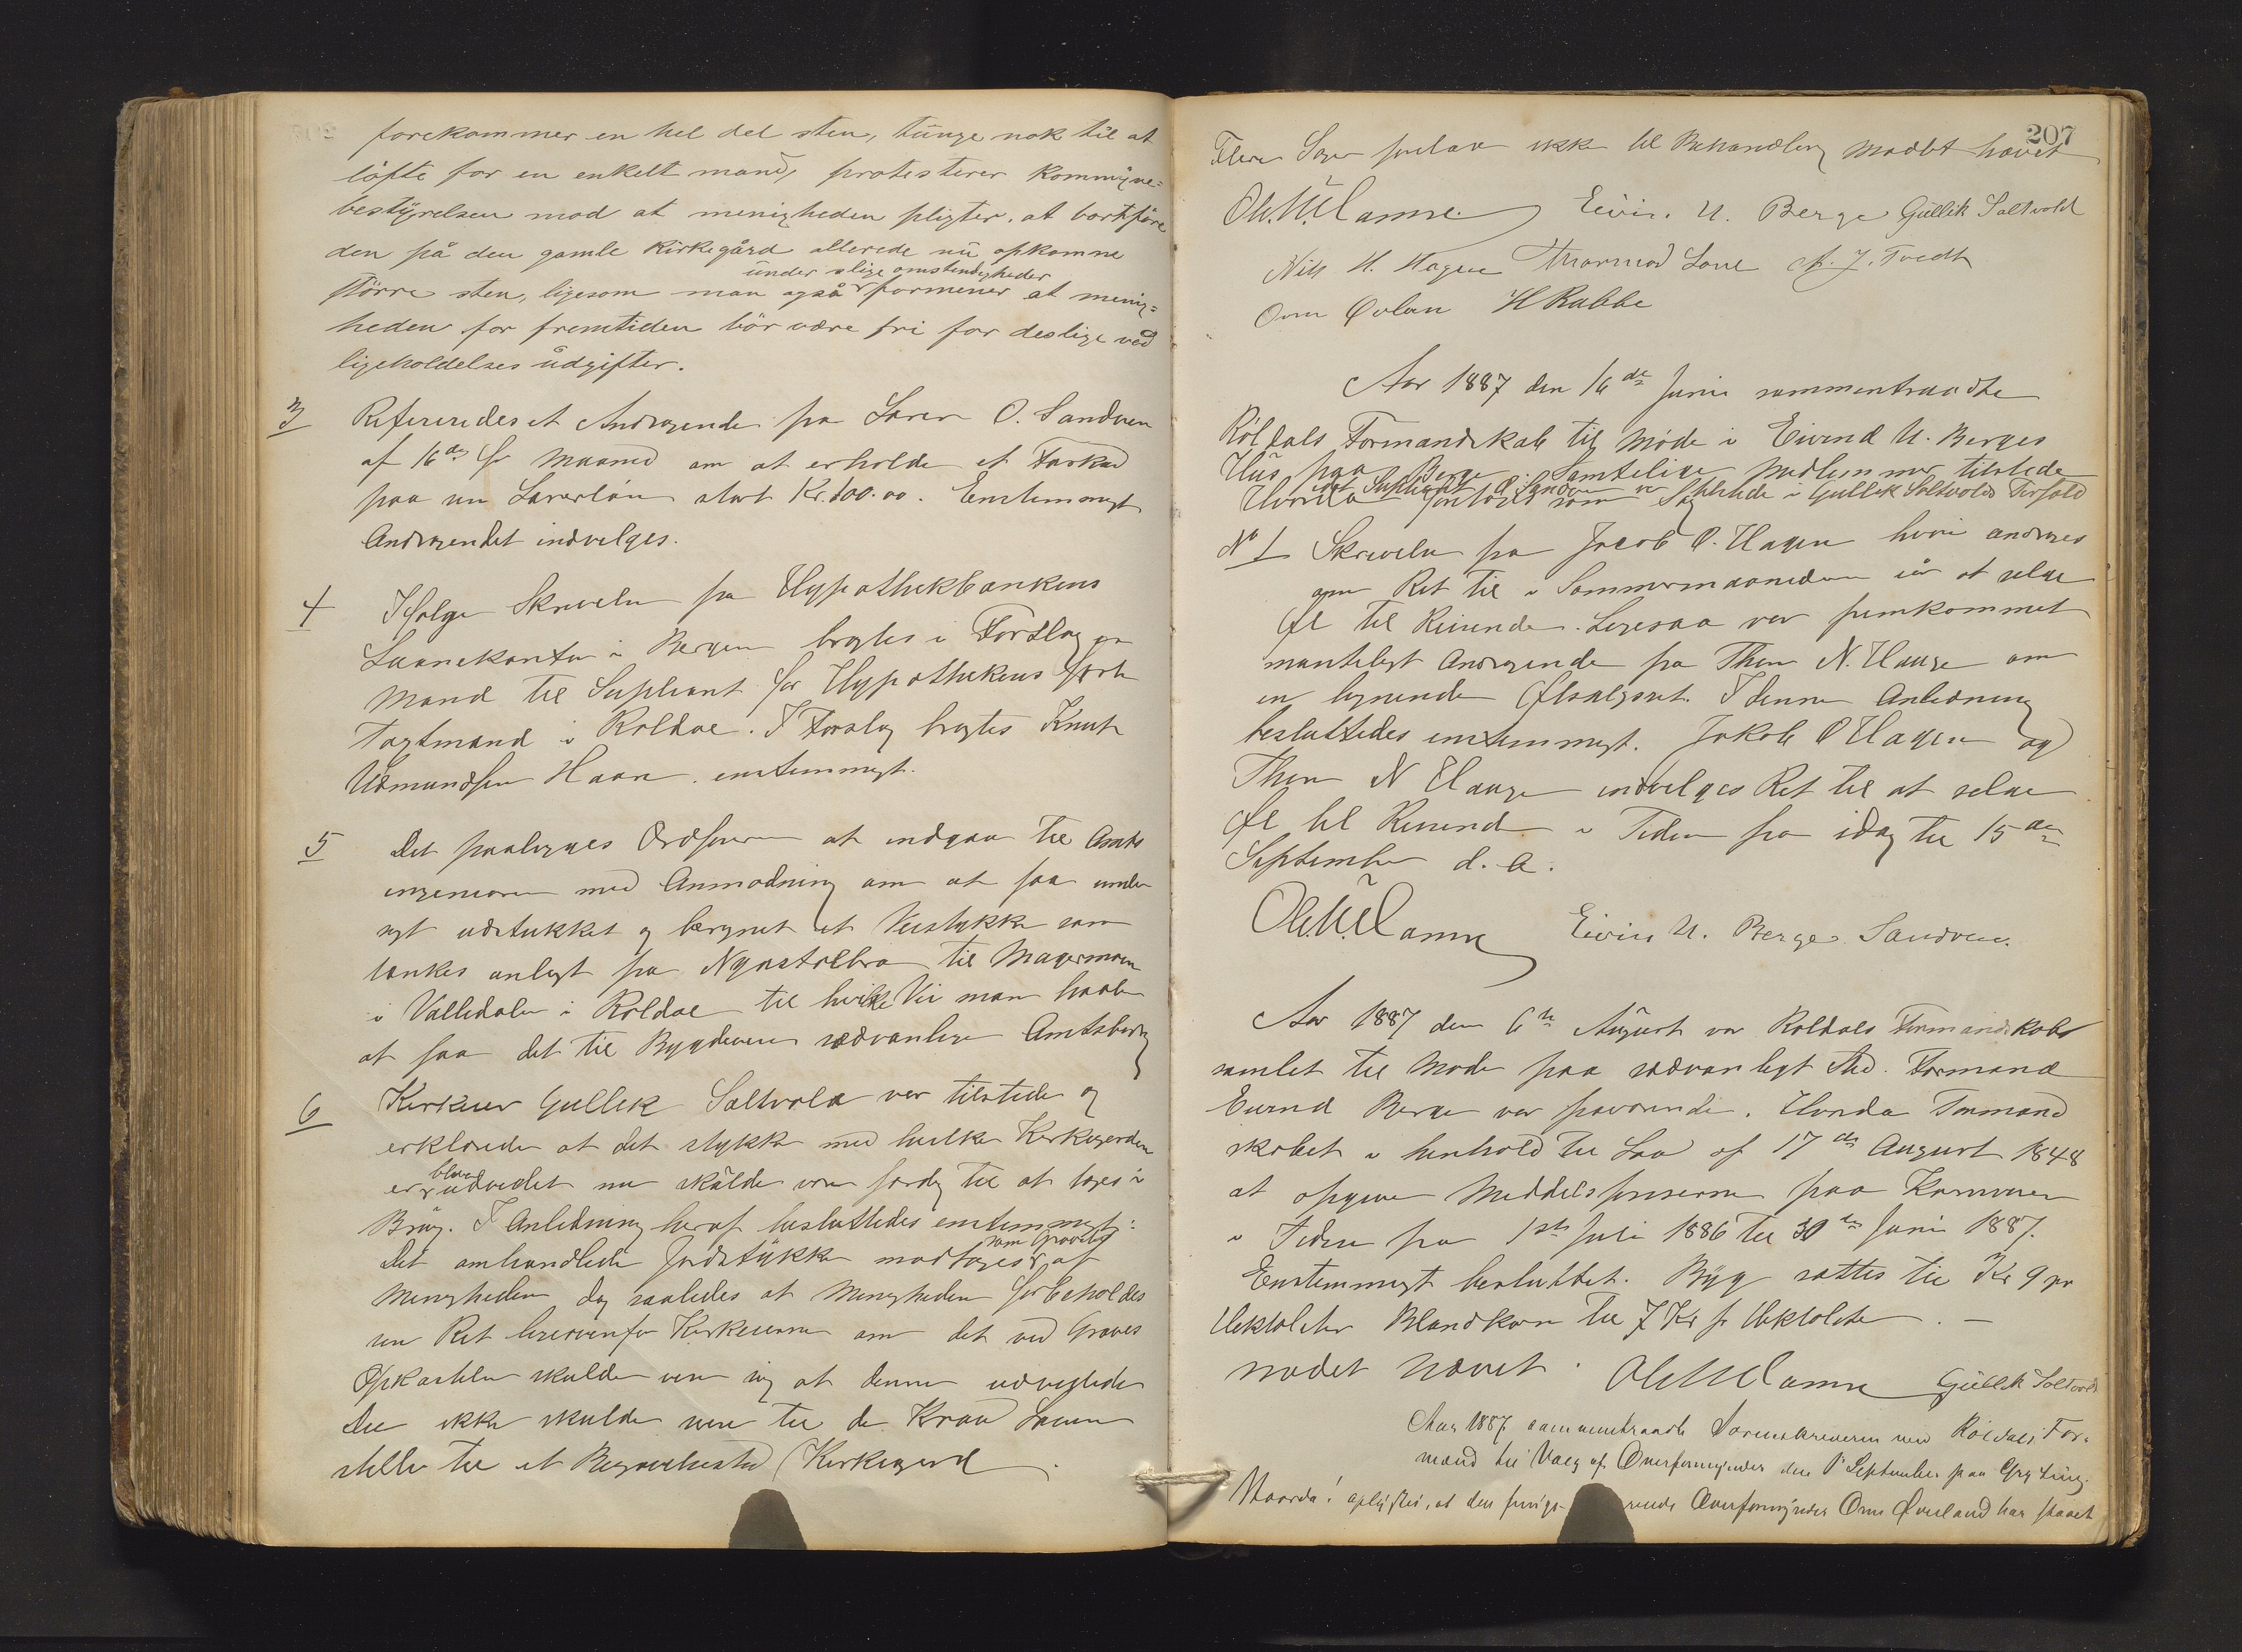 forekommer en hel del sten, tunge nok til at
løfte for en enkelt mand, protesterer kommune=
bestyrelsen mod at menigheden pligter, at bortføre
den på den gamle kirkegård allerede nu opkomne
under slige omstendigheder
större sten, ligesom man også formener at menig=
heden for fremtiden bör være fri for deslige ved
ligeholdelses udgifter.
3 Refereredes et Andragende fra Lærer O. Sandven
af 16de f. Maaned om at erholde et Forskud
paa sin Lærerløn stort Kr. 100.00. Enstemmigt
Andragendet indvilges.
4 Ifølge Skrivelse fra Hypothekbankens
Laanekontor i Bergen bragtes i Forslag en
Mand til Supleant for Hypothekens
Taxtmand i Røldal. I Forslag bragtes Knut
Asmundsen Haare enstemmigt.
5 Det paalægges Ordføreren at indgaa til Amts
ingeniøren med Anmodning om at faa under
søgt udstukket og beregnet et Veistykke som
tænkes anlagt fra Nyastølbro til Magermoen
i Valledalen i Røldal til hvilke Vei man haaber
at faa det til Bygdeveie sædvanlige Amtsbidrag
6 Kirkeeier Gullik Saltvold var tilstede og
erklærede at det stykke med hvilket Kirkegaarden
bleven
er udvidet nu skulde være færdig til at tages i
Brug. I Anledning heraf besluttedes enstemmigt:
som Gravsted
Det omhandlede Jordstykke modtages af
Menigheden dog saaledes at Menigheden forbeholdes
sin Ret ligeoverfor Kirkeeieren om det ved Graves
Opkastelse skulde vise sig at denne udvidede
Del ikke skulde svare til de Krav Loven
stiller til et Begravelsessted (Kirkegaard.
207
Flere Sager forelaa ikke til Behandling Mødet hævet
Eivin. U. Berge Gullik Saltvold
Nils H. Hagen Thormod Lone A. J. Tvedt
Orm Øvlan H Rabbe
Aar 1887 den 16de Juni sammentraadte
Röldals Formandskab til Møde i Eivind U. Berges
Hus paa Berge. Samtelige Medlemmer tilstede
idet Supleant O. Sandven var tilstede i Gullik Saltvolds Forfald
Hvorda foretoges som Sag
No 1 Skrivelse fra Jacob O. Hagen hvori andrages
om Ret til i Sommermaanederne iår at selge
Øl til Reisende. Ligesaa var fremkommet
mundtligt Andragende fra Thor N. Hauge om
en lignende Ølsalgsret. I denne Anledning
besluttedes enstemmigt. Jakob O Hagen og
Thor N Hauge indvilges Ret til at selge
Øl til Reisende i Tiden fra idag til 15de
September d. A.
Eivin U. Berge Sandven.
Aar 1887 den 6te August var Røldals Formandskab
samlet til Møde paa sædvanligt Sted. Formand
Eivind Berge var fraværende. Hvorda Formand
skabet i henhold til Lov af 17de August 1848
at opgive Middelspriserne paa Kornvarer
i Tiden fra 1ste Juli 1886 til 30te Juni 1887.
Enstemmigt besluttet. Byg sattes til Kr 9 pr
Hektoliter Blandkorn til 7 Kr pr Hektoliter. —
Mødet hævet. Gullik Saltvold
Aar 1887 sammentraadte Sorenskriveren med Röldals For-
mænd til Valg af Overformynder den September paa Grytting.
Hvorda: oplystes, at den fungerende Overformynder Orm Øverland har faaet